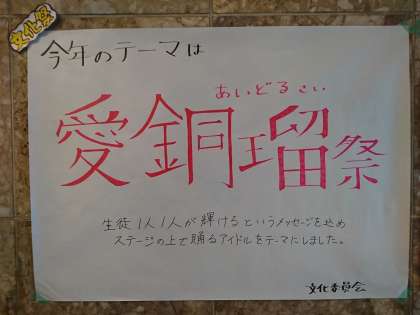 文化祭
今年のテーマは
あいどるさい
愛銅瑠祭
生徒1人1人が輝けるというメッセージを込め
ステージの上で踊るアイドルをテーマにしました。
文化委員会